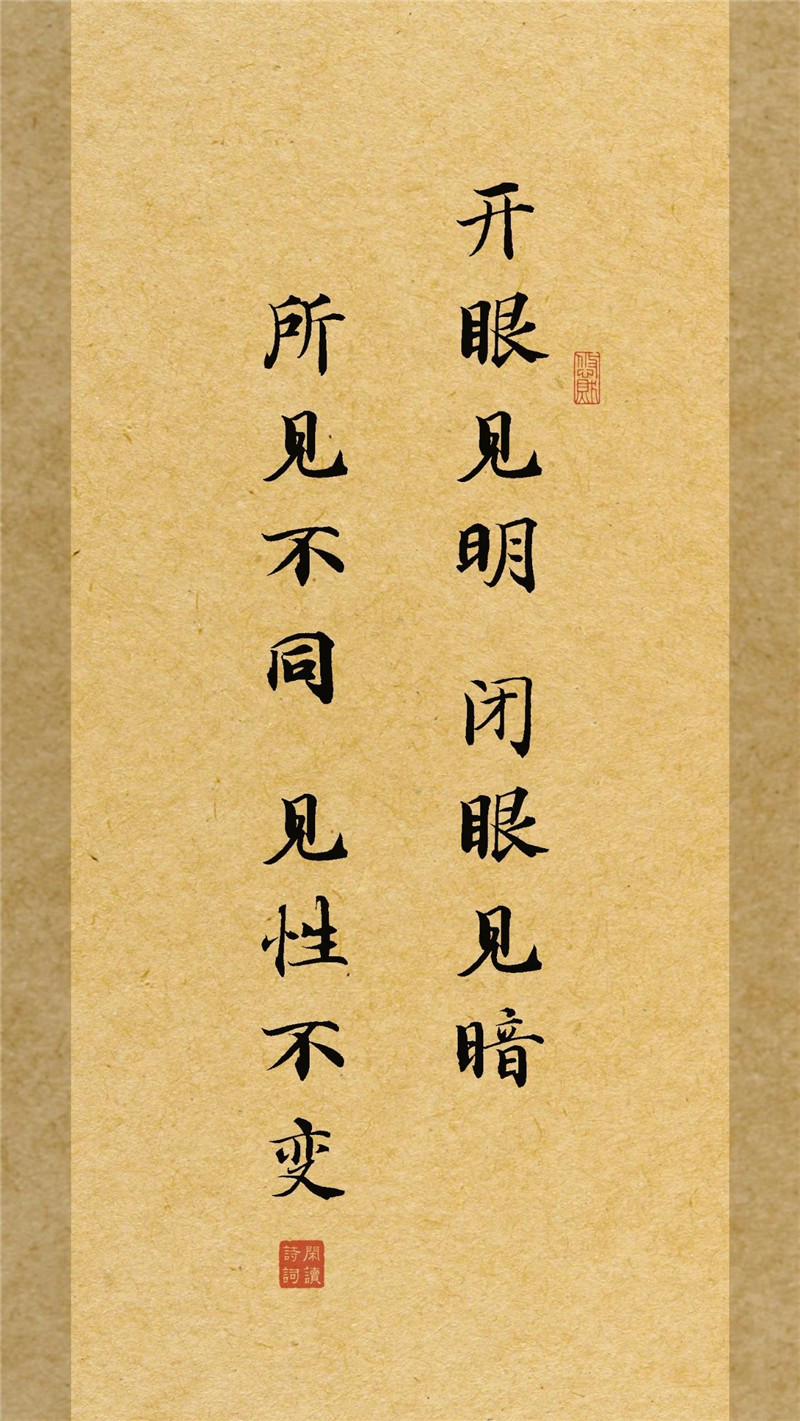 开眼见明 闭眼见暗
所见不同 见性不变
閑讀
詩詞